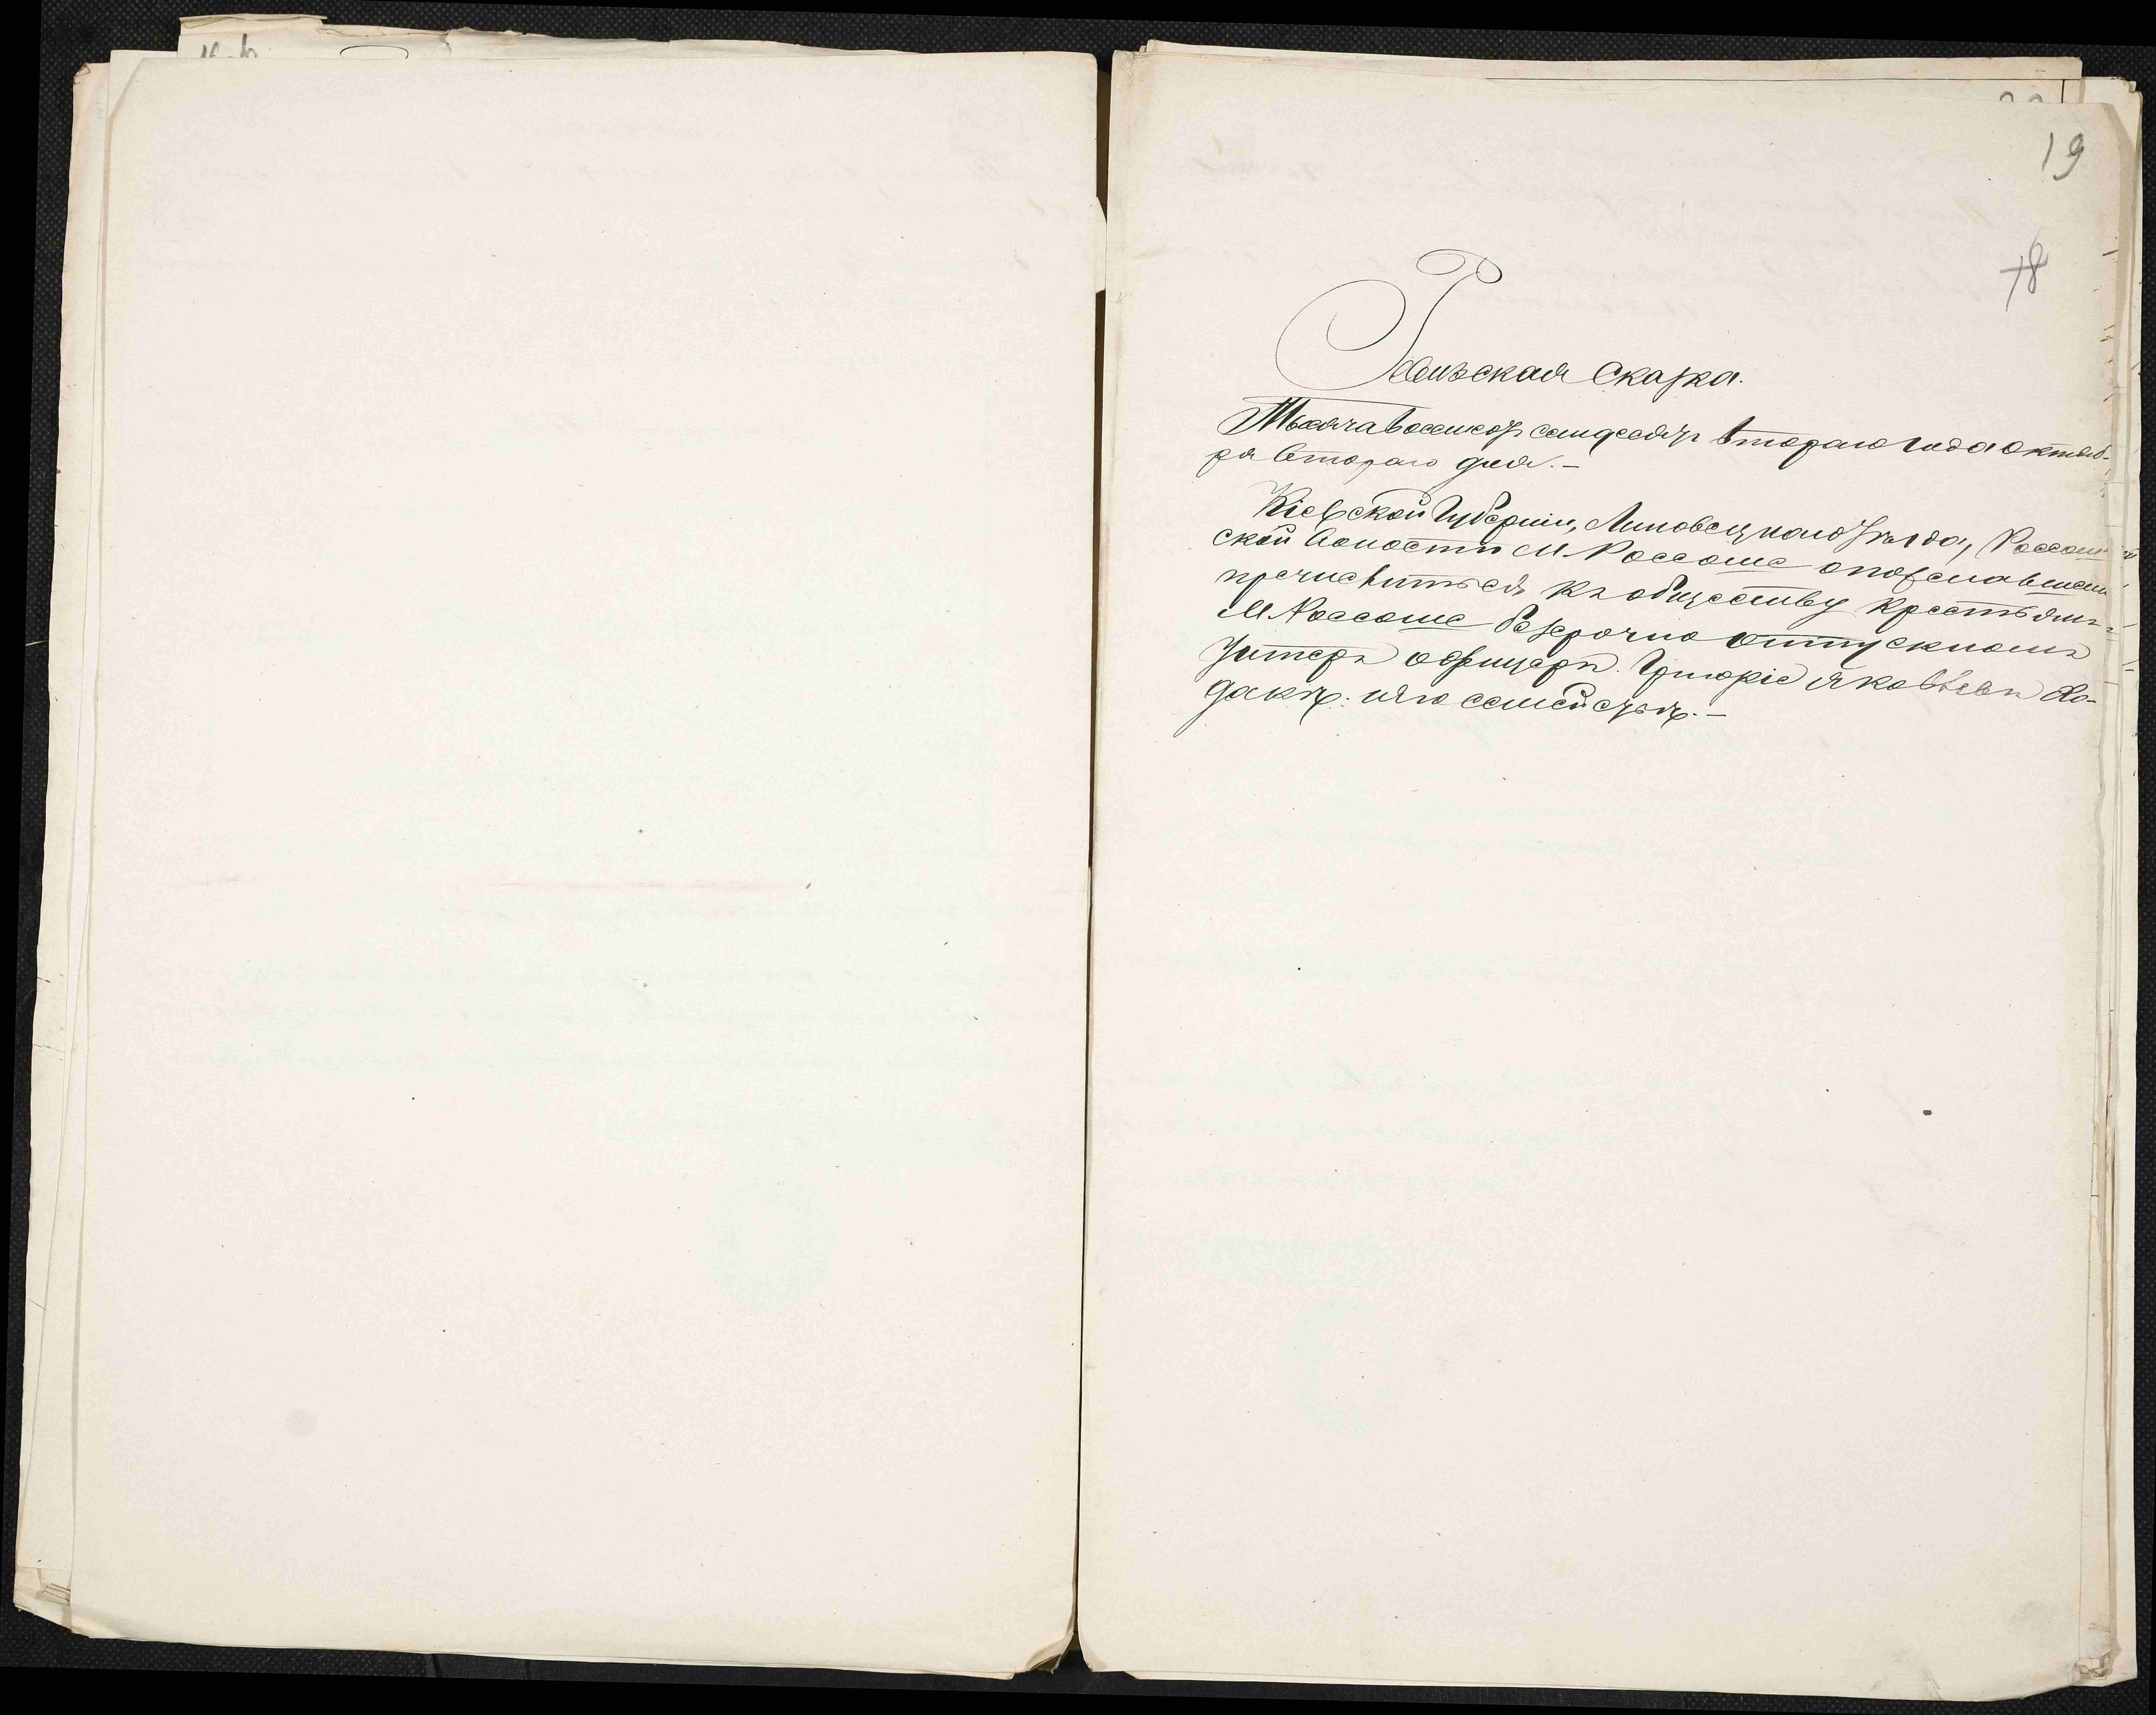 19
18
Ревизская сказка.
Тысяча восемсотъ семдесятъ втораго года октяб-
ря втораго дня.-
Кіевской Губерніи, Липовецкаго Уѣзда, Россош
ской Волости М. Россоше о пожелавшем
пречислиться къ обществу крестьянъ
М Россоше безсрочно отпускномъ
Унтеръ офицеръ. Григоріе Яковлевѣ
дакъ: и его семействѣ.-